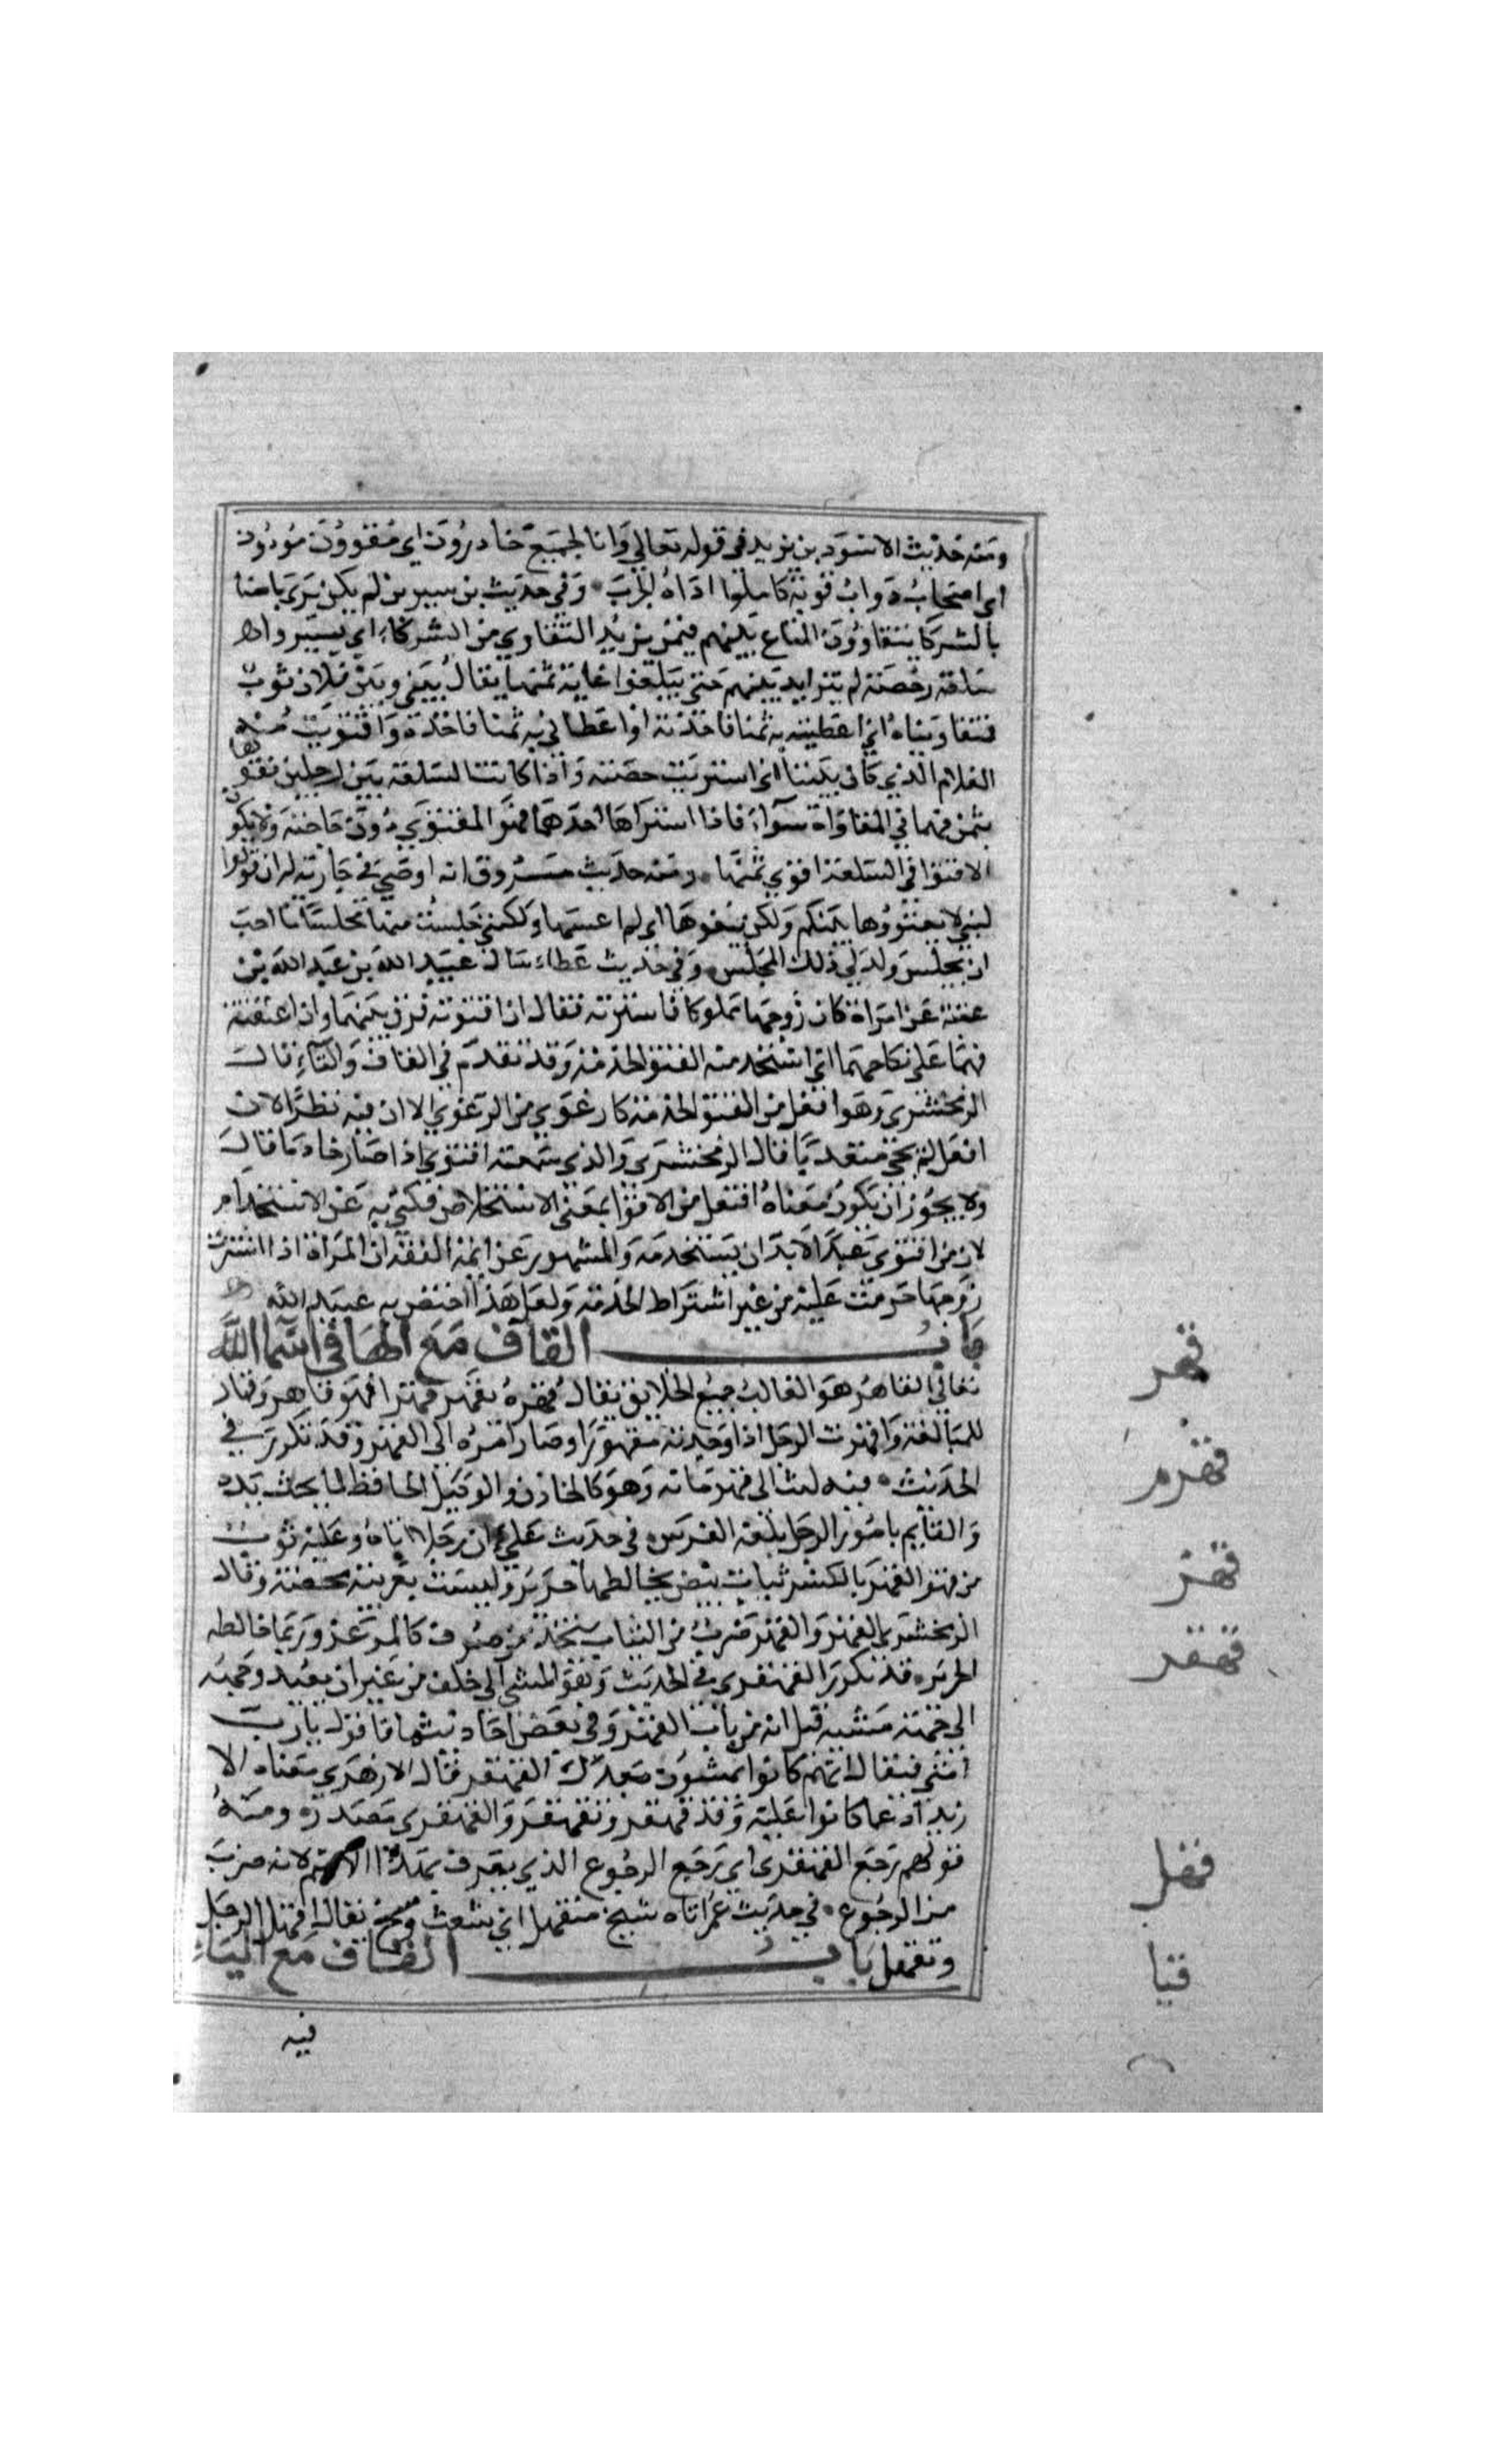 ومنه حديث الاسود بن يزيد في قوله تعالى وانا لجميع حاذرون اي مقوون مؤدون
اي اصحاب دواب قوية كاملوا اداة الحرب وفي حديث بن سيرين لم يكن يرى باسا
بالشركا يتقاوون المتاع بينهم فيمن يزيد التقاوي من الشركاء اي يشتروا
سلعة رخيصة لم يتزايد بينهم حتى يبلغوا غاية ثمنها يقال بيني وبين فلان ثوب
فتقاويناه اي اعطيته به ثمنا فاخذته او اعطاني به ثمنا فاخذه واقتويت منه
الغلام الذي كان بيننا اي اشتريت حصته واذا كانت السلعة بين رجلين فقوماها
بثمن فهما في المقاواة سواء فاذا اشتراها احدهما فهو المقتوي دون صاحبه ولا يكون
الاقتوا في السلعة ومنه حديث مسروق انه اوصى في جارية له ان قولوا
لبني لا تقتووها بينكم ولكن بيعوها اي لم اغشها ولكني جلست منها مجلسا ما احب
ان يجلس ولد لي ذلك المجلس وفي حديث عطاء سال عبيد الله بن عبد الله بن
عتبة عن امراة كان زوجها مملوكا فاشترته فقال ان اقتوته فرق بينهما وان اعتقته
فهما على نكاحهما اي استخدمته القتو الخدمة وقد تقدم في القاف والتاء قال
الزمخشري وهو افعل من القتو الخدمة كارعوى من الرعوى الا ان فيه نظرا لان
افعل لم يجئ متعديا قال الزمخشري والذي سمعته اقتوى اذا صار خادما قال
ولا يجوز ان يكون معناه افتعل من الاقتوا بمعنى الاستخلاص فكني به عن الاستخدام
لان من اقتوى عبدا لابد ان يستخدمه والمشهور عن ايمة الفقه ان المراة اذا اشترت
زوجها حرمت عليه من غير اشتراط الخدمة ولعل هذا اختص به عبيد الله
باب القاف مع الها في اسما الله
قهر
تعالى القاهر هو الغالب جميع الخلايق يقال قهره يقهره قهرا فهو قاهر وقهار
للمبالغة واقهرت الرجل اذا وجدته مقهورا او صار امره الى القهر وقد تكرر في
قهرم
الحديث فيه كتب الى قهرمانه وهو كالخازن والوكيل الحافظ لما تحت يده
قهز
والقايم بامور الرجل بلغة الفرس في حديث علي ان رجلا اتاه وعليه ثوب
من قهز القهز بالكسر ثياب بيض يخالطها حرير وليست بعربية محضة وقال
قهقر
الزمخشري القهز والقهز ضرب من الثياب يتخذ من صوف كالمرعزى وربما خالطه
الحرير قد تكرر القهقرى في الحديث وهو المشي الى خلف من غير ان يعيد وجهه
الى جهة مشيه قيل انه من باب القهر وفي بعض احاديثها فاقول يا رب
امتي فيقال انهم كانوا يمشون بعدك القهقرى قال الازهري معناه الا
رتداد عما كانوا عليه وقد قهقر وتقهقر والقهقرى مصدره ومنه
قهل
قولهم رجع القهقرى اي رجع الرجوع الذي يعرف بهذا الاسم لانه ضرب
من الرجوع في حديث عمر اتاه شيخ متقهل اي شعث وسخ يقال اقهل الرجل
قيا
وتقهل باب القاف مع الياء
فيه